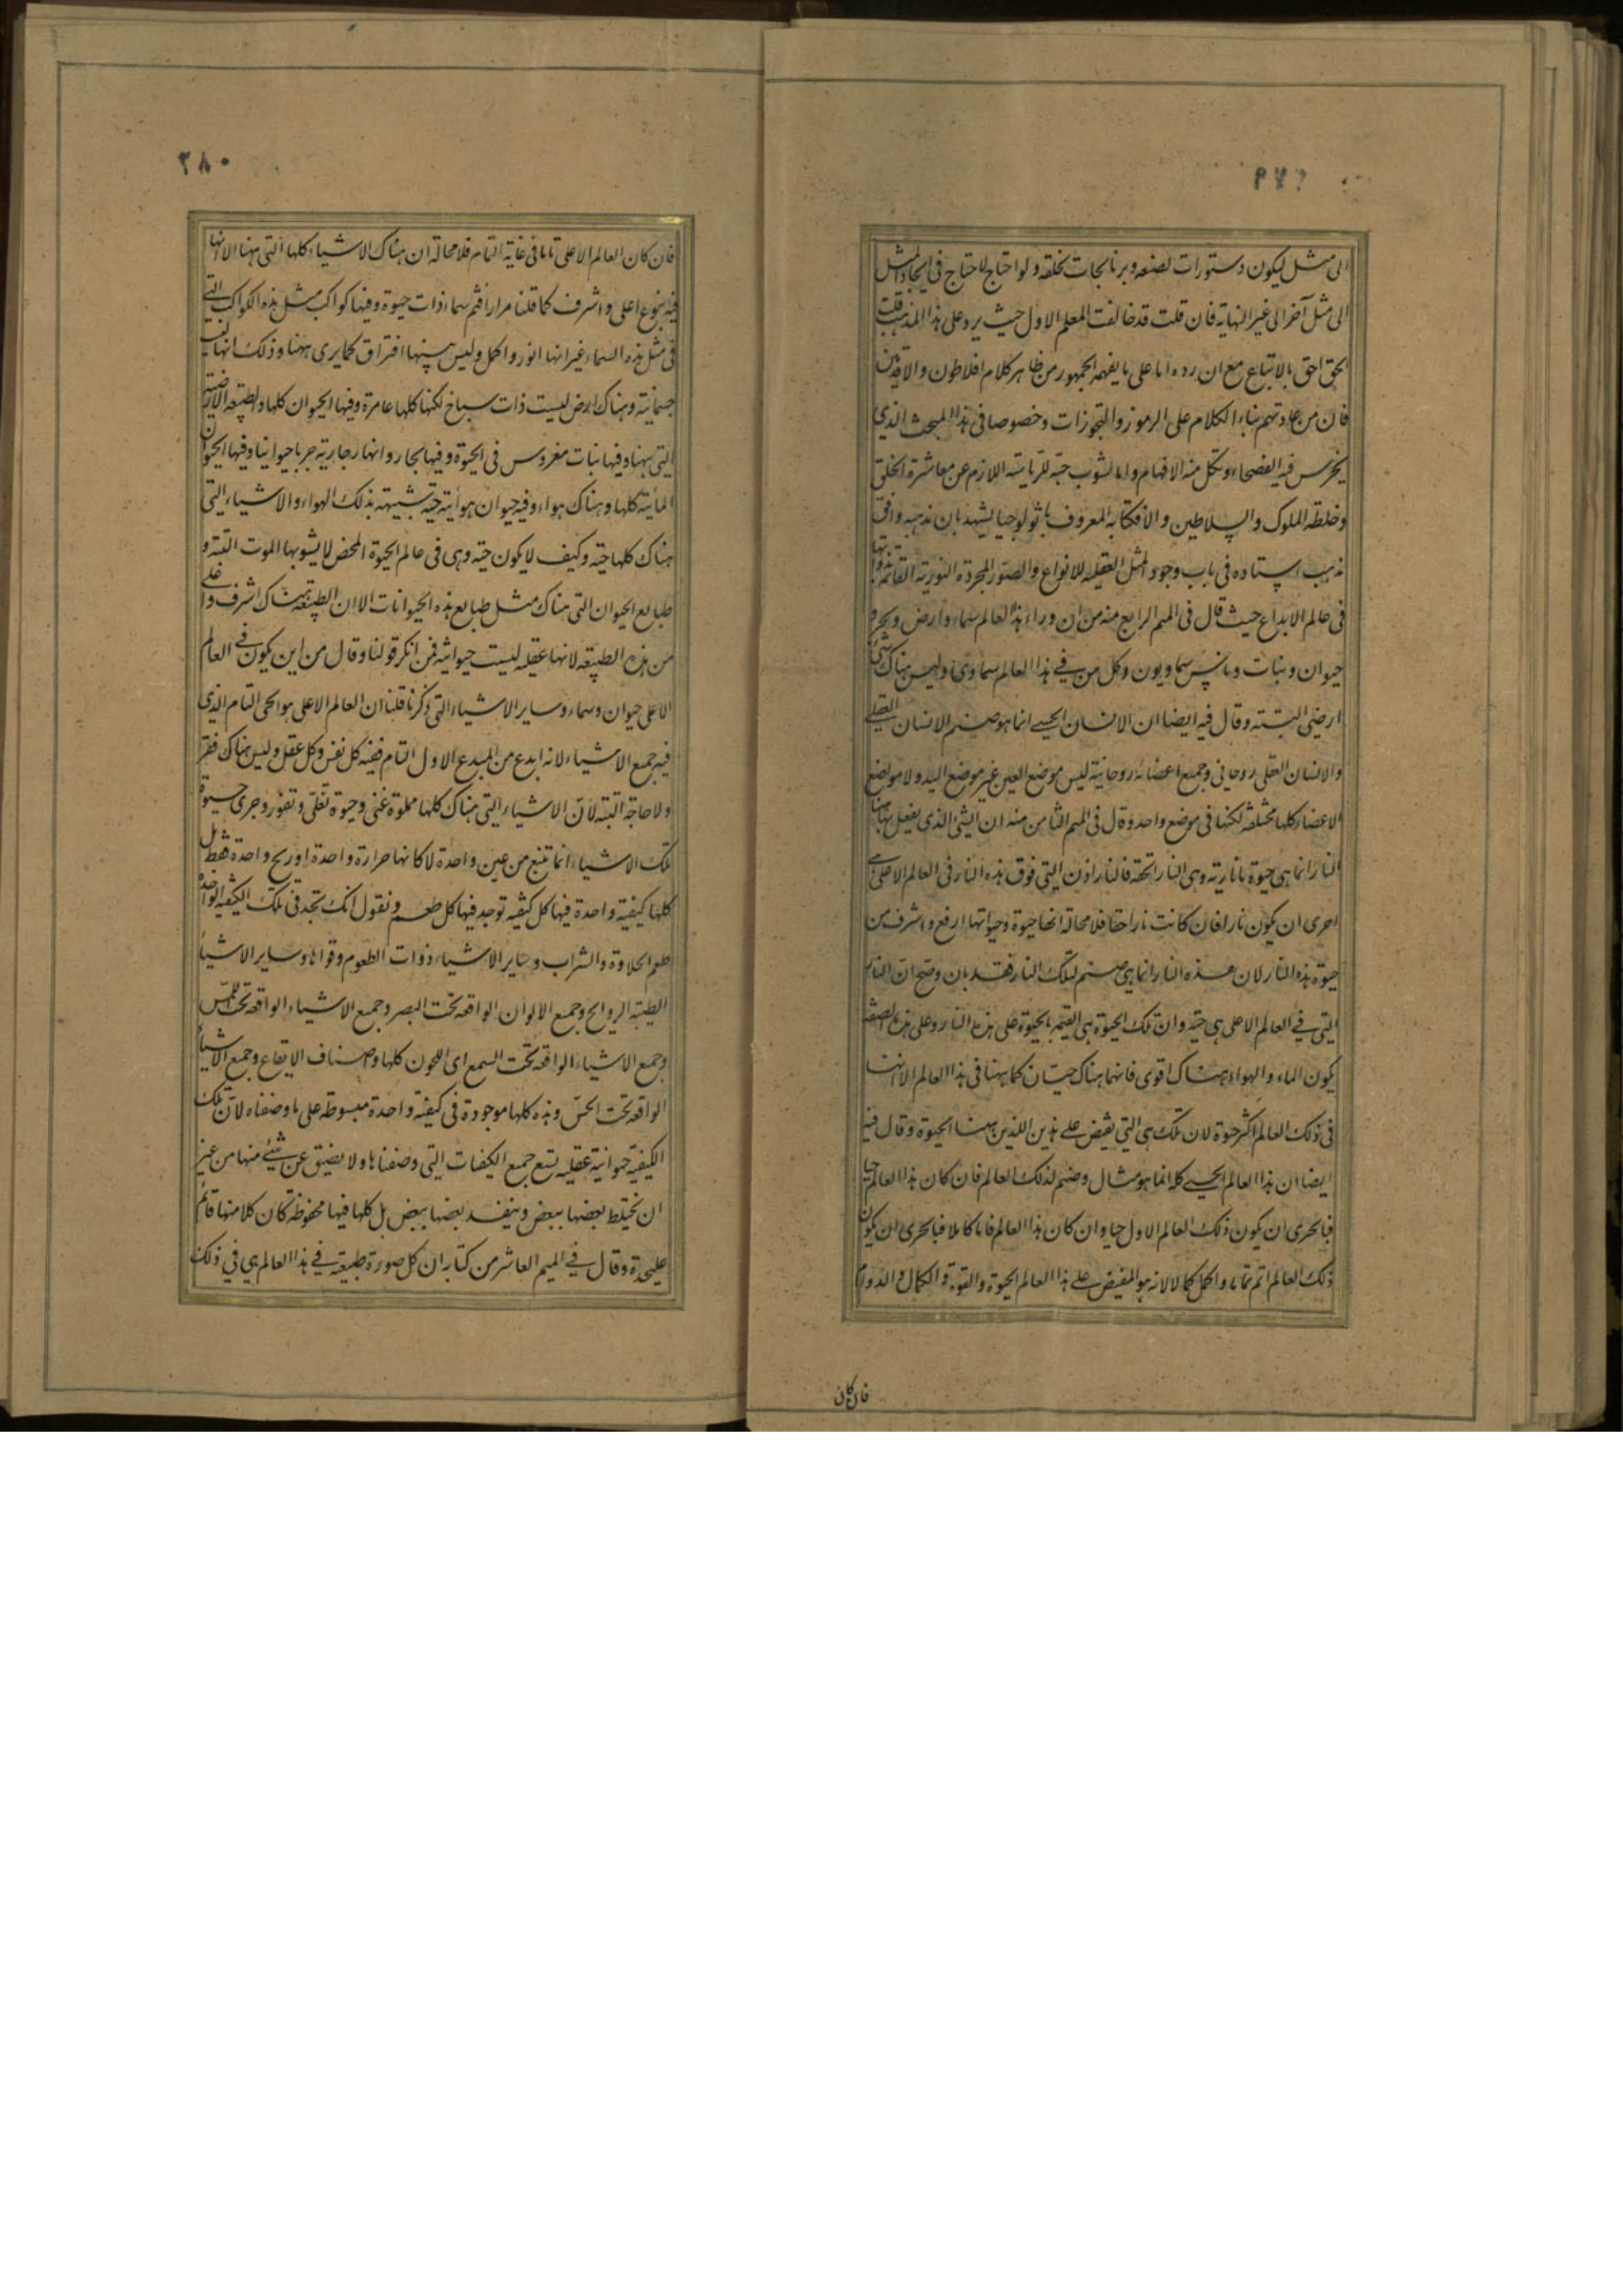 ٢٧٩
الى مثل ليكون دستورات لصنعه وبرنامجات لخلقه ولو احتاج لاحتاج فى ايجاد المثل
الى مثل آخر الى غير النهاية فان قلت قد خالفت المعلم الاول حيث يرد على هذا المذهب قلت
الحق احق بالاتباع مع ان رده اما على ما يفهمه الجمهور من ظاهر كلام افلاطون والاقدمين
فان من عادتهم بناء الكلام على الرموز والتجوزات وخصوصا فى هذا المبحث الذي
يخرس فيه الفصحاء وتكل منه الافهام واما لشوب حبّه للرياسة اللازم عن معاشرة الخلق
وخلطة الملوك والسلاطين والا فكتابه المعروف باثولوجيا يشهد بان مذهبه وافق
مذهب استاده فى باب وجود المثل العقلية للانواع والصور المجردة النورية القائمة بذواتها
فى عالم الابداع حيث قال فى الميمر الرابع منه من ان وراء هذا العالم سماء وارض وبحر و
حيوان ونبات وناس سماويون وكل من في هذا العالم سماوى وليس هناك شئ
ارضى البتة وقال فيه ايضا ان الانسان الحسي انما هو صنم الانسان العقلي
والانسان العقلى روحانى وجميع اعضائه روحانية ليس موضع العين غير موضع اليد ولا مواضع
الاعضاء كلها مختلفة لكنها فى موضع واحد وقال فى الميمر الثامن منه ان الشئ الذى يفعل بها هاهنا
النار انما هى حيوة ما نارية وهى النار الحقة فالنار اذن التى فوق هذه النار فى العالم الاعلى هى
احرى ان يكون نارا فان كانت نارا حقا فلا محالة انها حيوة وحيوتها ارفع واشرف من
حيوة هذه النار لان هذه النار انما هى صنم لتلك النار فقد بان وصح ان النار
التى في العالم الاعلى هى حية وان تلك الحيوة هى القيمة بالحيوة على هذه النار وعلى هذه الصفة
يكون الماء والهواء هناك اقوى فانهما هناك حيّان كما ههنا فى هذا العالم الا انهما
فى ذلك العالم اكثر حيوة لان تلك هى التى تفيض على هذين اللذين ههنا الحيوة وقال فيه
ايضا ان هذا العالم الحسي كله انما هو مثال وصنم لذلك العالم فان كان هذا العالم حيا
فبالحرى ان يكون ذلك العالم الاول حيا وان كان هذا العالم تاما كاملا فبالحرى ان يكون
ذلك العالم اتم تماما واكمل كمالا لانه هو المفيض على هذا العالم الحيوة والقوة والكمال والدوام
فان كان
٢٨٠
فان كان العالم الاعلى تاما فى غاية التمام فلا محالة ان هناك الاشياء كلها التى ههنا الا انها
فيه بنوع اعلى واشرف كما قلنا مرارا فثم سماء ذات حيوة وفيها كواكب مثل هذه الكواكب التي
فى مثل هذه السماء غير انها انور واكمل وليس بينها افتراق كما يرى ههنا وذلك انها ليست
جسمانية وهناك ارض ليست ذات سباخ لكنها كلها عامرة وفيها الحيوان كلها والطبيعة الارضية
التى ههنا وفيها نبات مغروس فى الحيوة وفيها بحار وانهار جارية جريا حيوانيا وفيها الحيوان
المائية كلها وهناك هواء وفيه حيوان هوائية حية شبيهة بذلك الهواء والاشياء التى
هناك كلها حية وكيف لا يكون حية وهى فى عالم الحيوة المحض لا يشوبها الموت البتة و
طبايع الحيوان التى هناك مثل طبايع هذه الحيوانات الا ان الطبيعة هناك اشرف واعلى
من هذه الطبيعة لانها عقلية ليست حيوانية فمن انكر قولنا وقال من اين يكون في العالم
الاعلى حيوان وسماء وساير الاشياء التى ذكرنا قلنا ان العالم الاعلى هو الحى التام الذى
فيه جميع الاشياء لانه ابدع من المبدع الاول التام ففيه كل نفس وكل عقل وليس هناك فقر
ولا حاجة البتة لان الاشياء التى هناك كلها مملوة غنى وحيوة تغلى وتفور وجرى حيوة
تلك الاشياء انما تنبع من عين واحدة لا كانها حرارة واحدة او ريح واحدة فقط بل
كلها كيفية واحدة فيها كل كيفية توجد فيها كل طعم ونقول انك تجد فى تلك الكيفية الواحدة
طعم الحلاوة والشراب وساير الاشياء ذوات الطعوم وقواها وساير الاشياء
الطيبة الروايح وجميع الالوان الواقعة تحت البصر وجميع الاشياء الواقعة تحت اللمس
وجميع الاشياء الواقعة تحت السمع اى اللحون كلها واصناف الايقاع وجميع الاشياء
الواقعة تحت الحس وهذه كلها موجودة فى كيفية واحدة مبسوطة على ما وصفناه لان تلك
الكيفية حيوانية عقلية تسع جميع الكيفيات التى وصفناها ولا يضيق عن شئ منها من غير
ان يختلط بعضها ببعض وينفسد بعضها ببعض بل كلها فيها محفوظة كان كلا منها قائم
عليحدة وقال في الميمر العاشر من كتابه ان كل صورة طبيعية في هذا العالم هى في ذلك